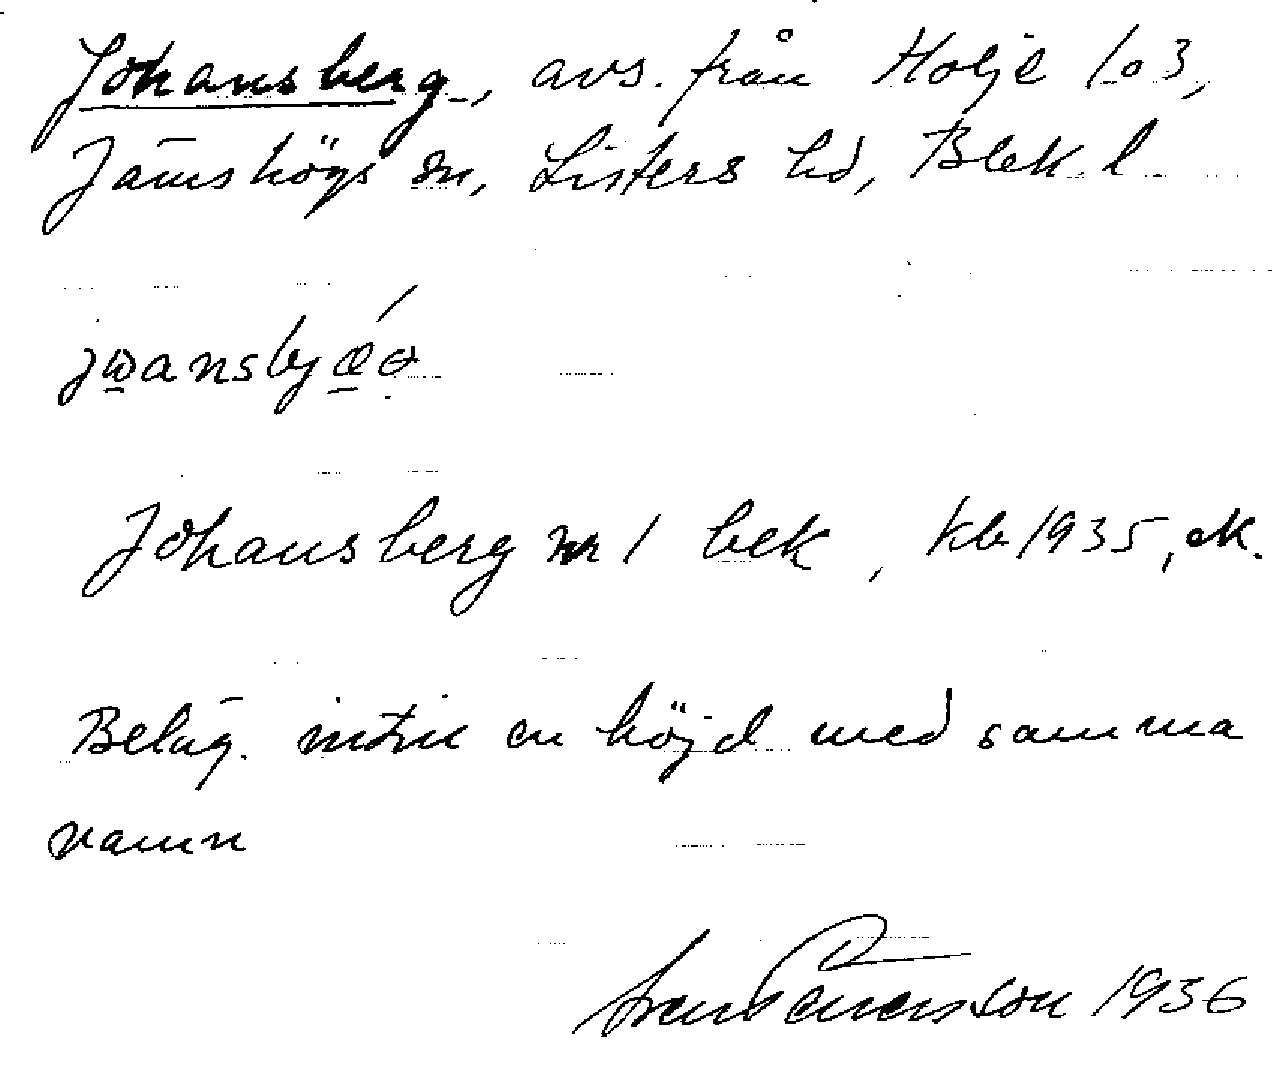 Johansberg, avs. från Holje 1 o 3,
Jämshögs sn, Listers hd, Blek. l
Johansberg nr 1 bek, kb 1935, ek.
Beläg. intill en höjd med samma
namn
1936